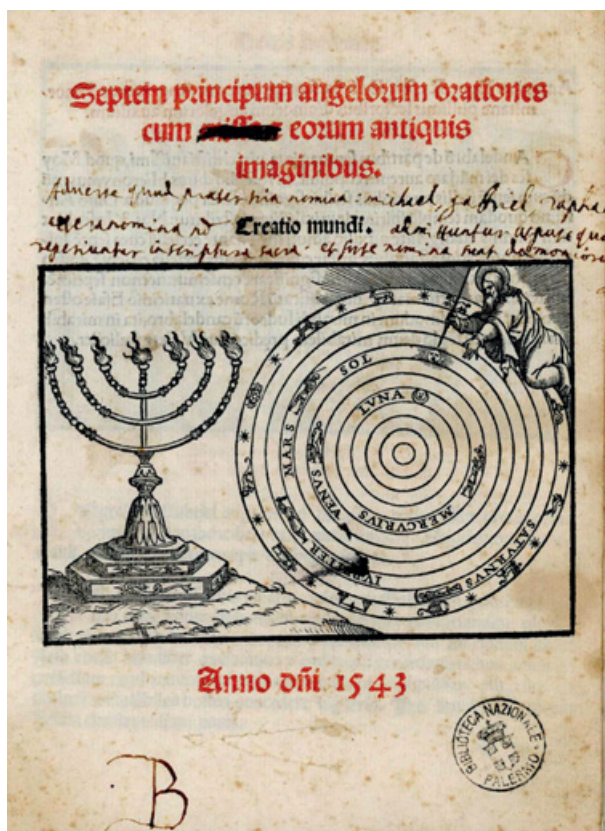 Septem principum angelorum orationes
cum missa eorum antiquis
imaginibus.
Adverte quod praeter tria nomina: michael gabriel rapha
nomina nō Creatio mundi. admittuntur
reperiuntur in scriptura sacra. et forte nomina sunt demonior
LUNA
MERCVRIVS
VENVS
SOL
MARS
IVPITER
SATVRNVS
Anno dñi 1543
B
BIBLIOTECA NAZIONALE
PALERMO